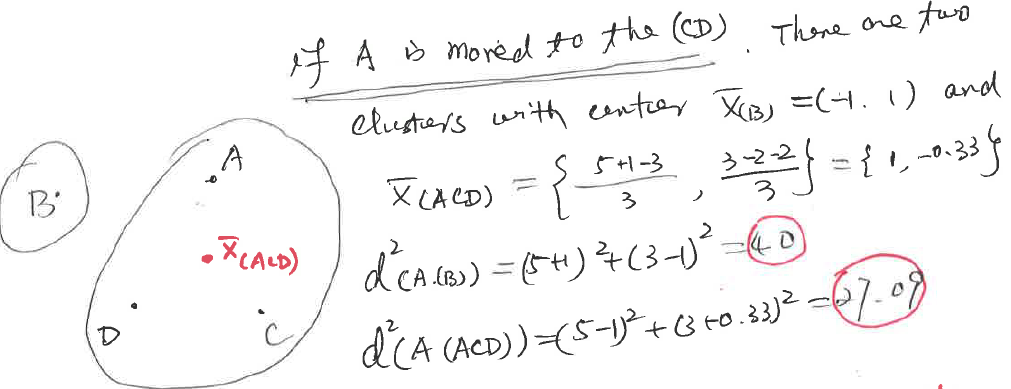 if A is moved to the (CD). There are two
clusters with center X̄(B) = (-1, 1) and
X̄(ACD) = { (5+1-3)/3 , (3-2-2)/3 } = { 1, -0.33 }
d²(A.(B)) = (5+1)² + (3-1)² = 40
d²(A (ACD)) = (5-1)² + (3+0.33)² = 27.09
A
B
X̄(ACD)
D
C